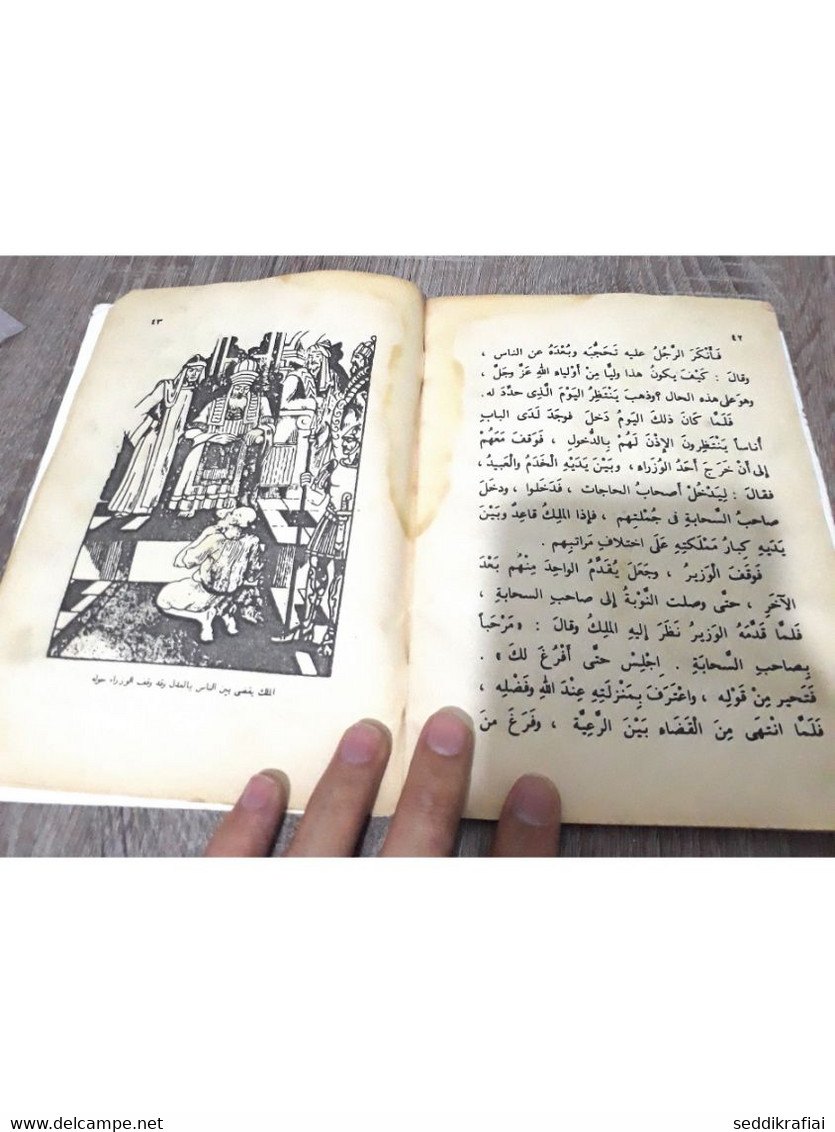 ٤٢
فَأَنْكَرَ الرَّجُلُ عليه تَحَجُّبَه وبُعْدَهُ عن الناس ،
وقالَ : كَيْفَ يكونُ هذا وليًّا مِنْ أَوْلياء اللهِ عَزَّ وجَلَّ ،
وهو على هذه الحال ؟ وذهبَ يَنْتَظِرُ اليَوْمَ الَّذِى حدَّدَ له .
فَلَمَّا كَانَ ذلكَ اليومُ دَخلَ فوجَدَ لَدَى البابِ
أُناساً يَنْتَظِرونَ الإِذْنَ لَهُمْ بِالدُّخولِ ، فَوَقفَ مَعَهُمْ
إلى أَنْ خَرجَ أَحَدُ الوُزَراءِ ، وبَيْنَ يَدَيْهِ الخَدَمُ والْعَبيدُ ،
فقالَ : لِيَدْخُلْ أَصحابُ الحاجات ، فَدَخَلوا ، ودخَلَ
صاحبُ السَّحابةِ فى جُمْلتِهم ، فإذا المَلِكُ قاعِدٌ وبَيْنَ
يَدَيْهِ كِبارُ مَمْلَكتِهِ عَلَى اختلافِ مَراتبِهم .
فَوقَفَ الْوَزيرُ ، وجَعَلَ يُقَدِّمُ الواحِدَ مِنْهُم بَعْدَ
الآخَرِ ، حتَّى وصلَتِ النَّوْبةُ إلى صاحبِ السحابةِ ،
فَلَمَّا قَدَّمَهُ الوزيرُ نَظَرَ إليهِ المَلِكُ وقالَ : «مَرْحَباً
بِصاحبِ السَّحابَةِ . اِجْلِسْ حتَّى أَفْرُغَ لكَ» .
فَتَحير مِنْ قولِه ، واعْتَرَفَ بِمَنْزلَتِهِ عِنْدَ اللهِ وفَضْلِه ،
فَلَمَّا انْتَهَى مِنَ الْقَضَاء بَيْنَ الرَّعِيَّةِ ، وفَرَغَ مِنَ
٤٣
الملك يقضى بين الناس بالعدل وقد وقف الوزراء حوله
www.delcampe.net
seddikrafiai